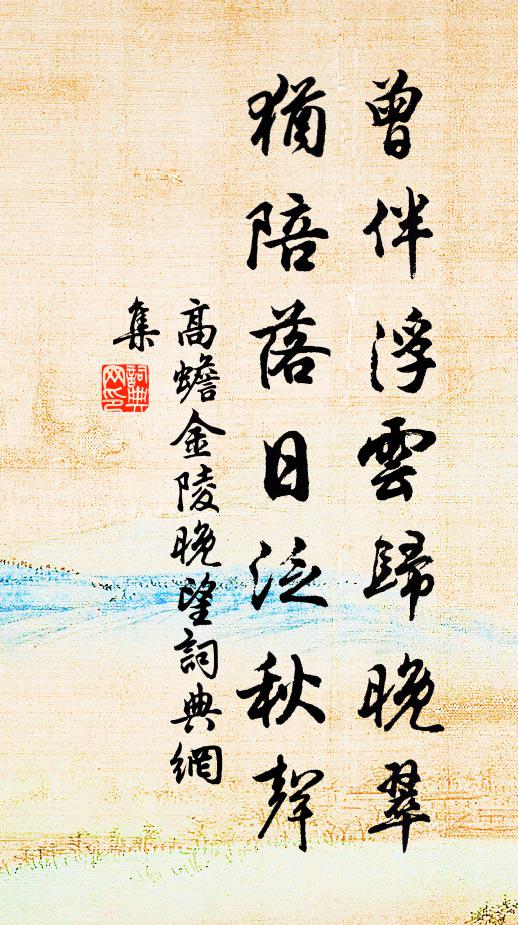 曾伴浮雲歸晚翠
猶陪落日泛秋聲
高蟾金陵晚望詞典網
集
詞典網印